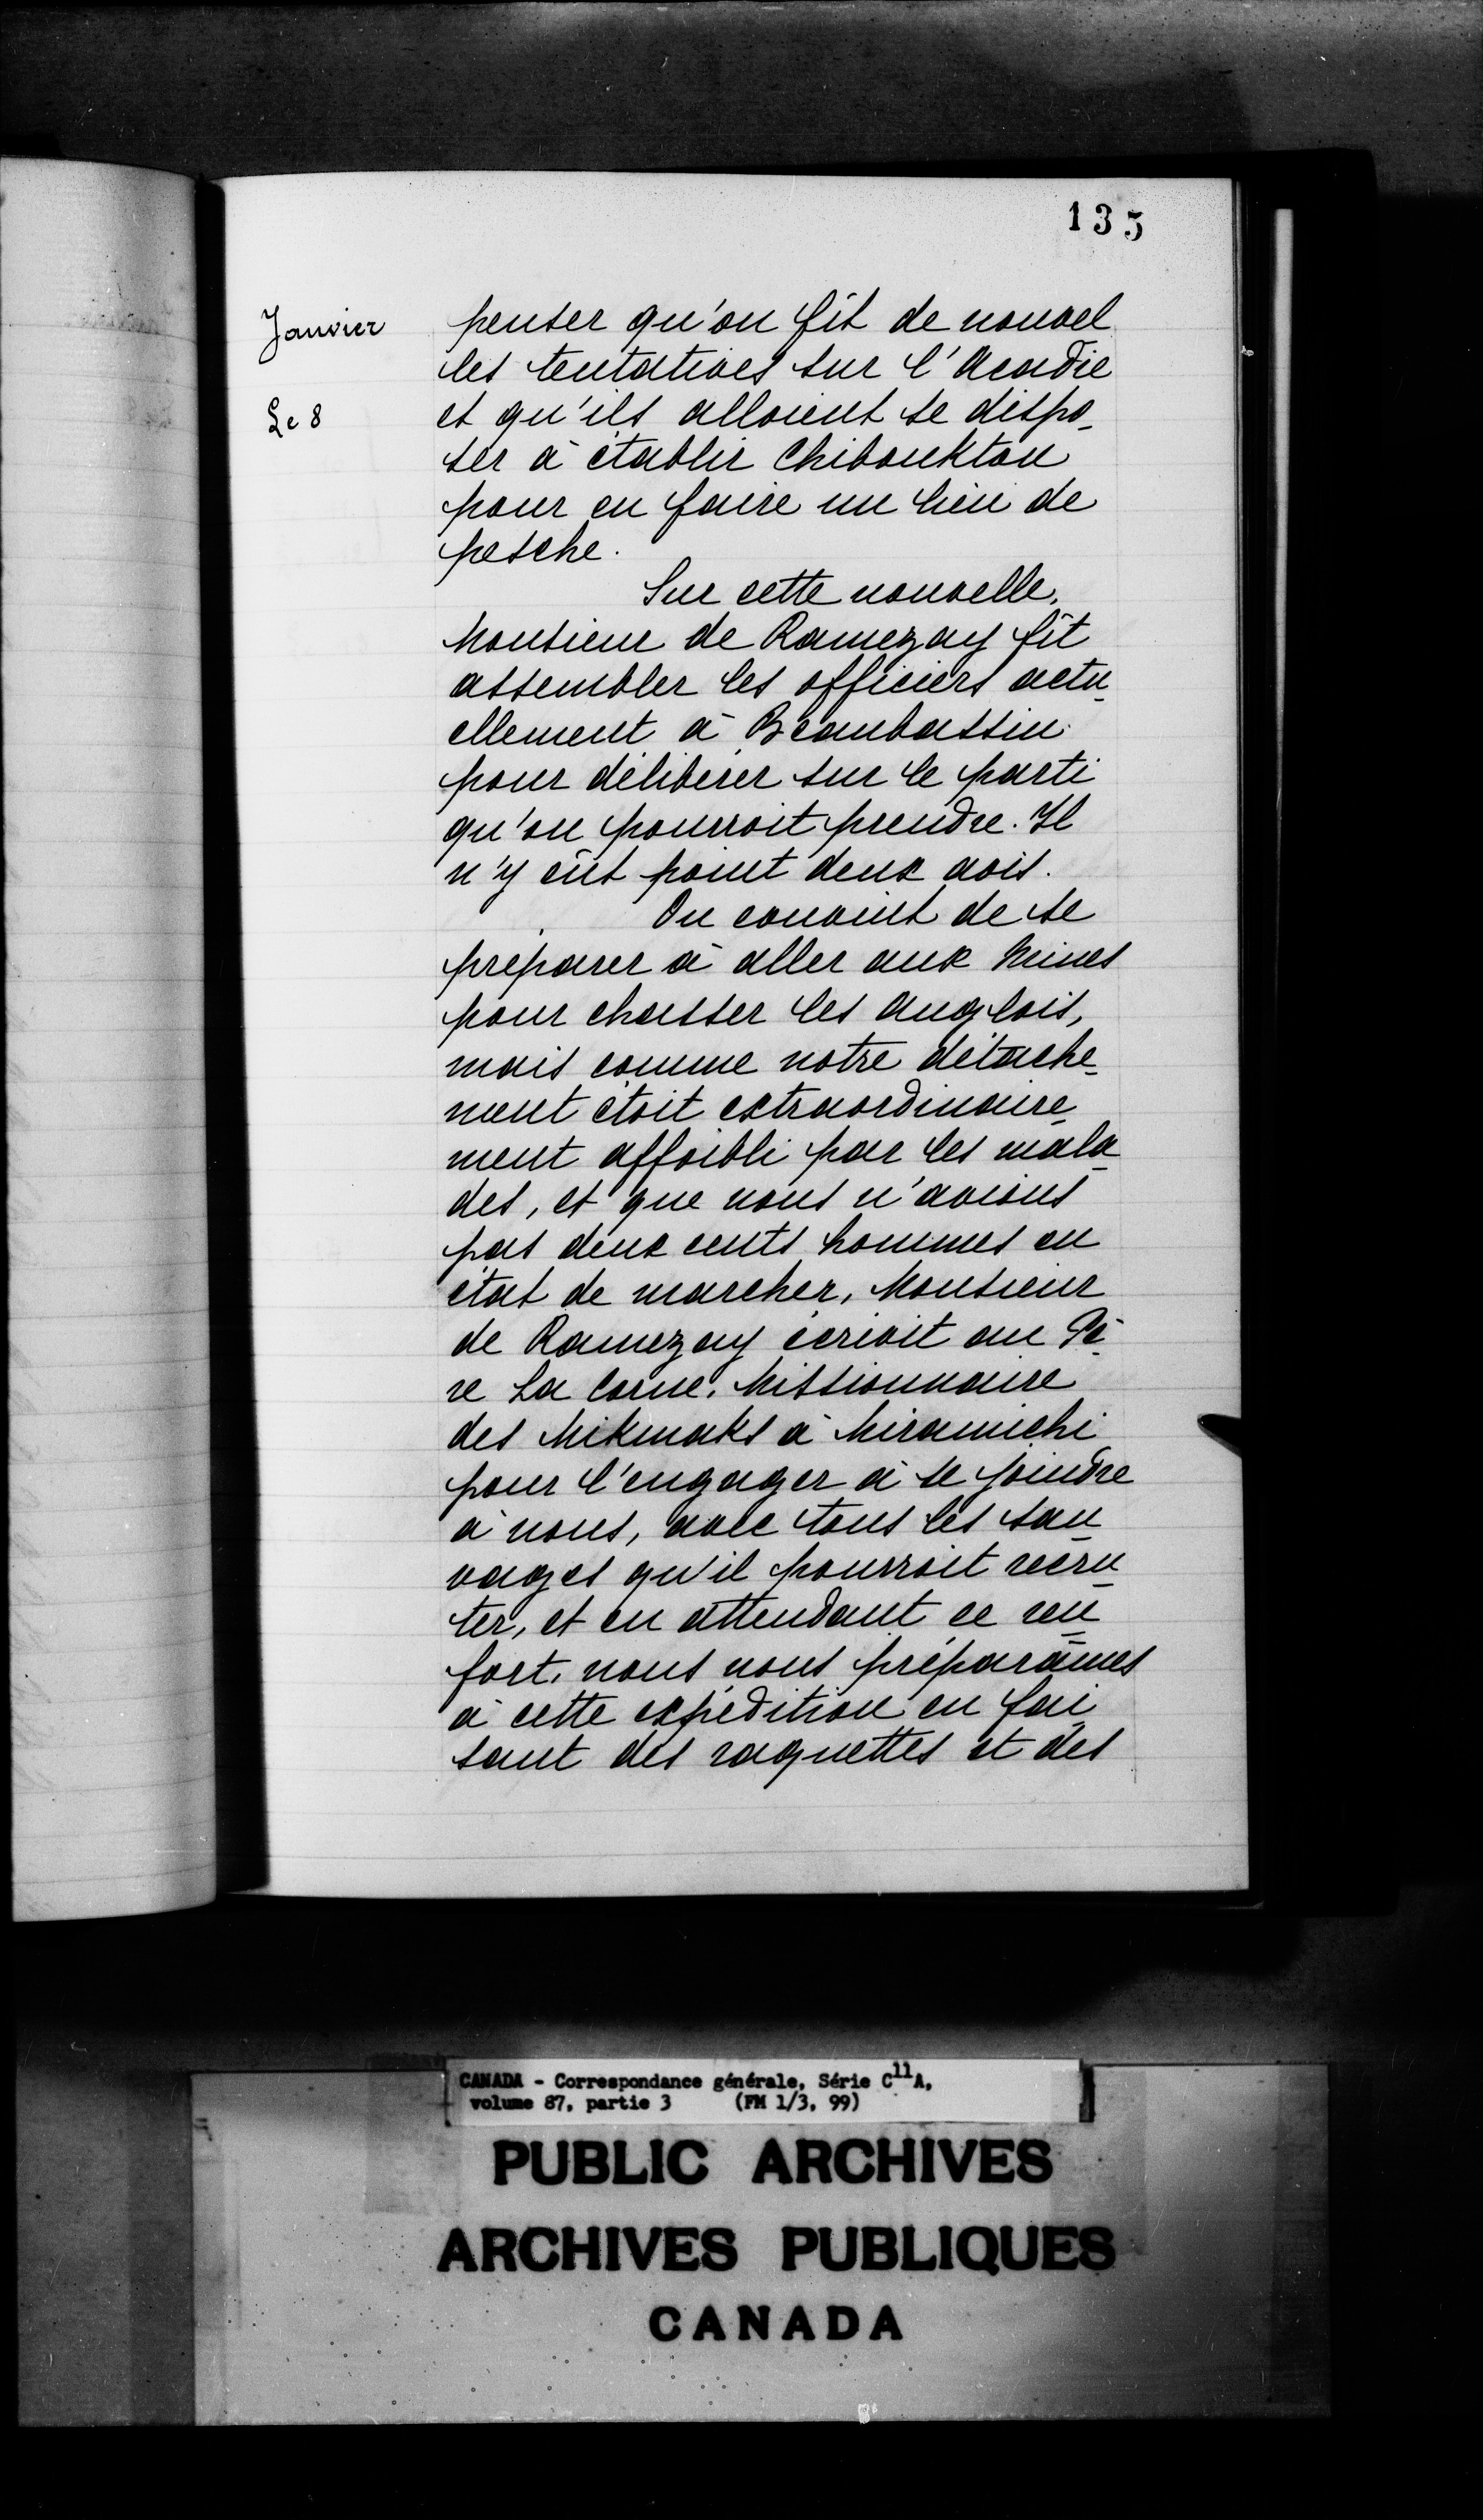 135
Janvier
penser qu'on fît de nouvel
les tentatives sur l'Acadie
Le 8
et qu'ils alloient se dispo-
ser à établir Chibouktou
pour en faire un lieu de
pesche.
Sur cette nouvelle,
Monsieur de Ramezay fît
assembler les officiers actu-
ellement à Beaubassin
pour délibérer sur le parti
qu'on pourroit prendre. Il
n'y eût point deux avis.
On convint de se
préparer à aller aux Mines
pour chasser les Anglois,
mais comme notre détache-
ment étoit extraordinaire-
ment affoibli par les mala-
des, et que nous n'avions
pas deux cents hommes en
état de marcher, Monsieur
de Ramezay écrivit au Pè-
re La Corne, Missionnaire
des Mikmaks à Miramichi
pour l'engager à se joindre
à nous, avec tous les sau-
vages qu'il pourroit recru-
ter, et en attendant ce ren-
fort, nous nous préparâmes
à cette expédition en fai-
sant des raquettes et des
CANADA - Correspondance générale, Série C11A,
volume 87, partie 3 (FM 1/3, 99)
PUBLIC ARCHIVES
ARCHIVES PUBLIQUES
CANADA